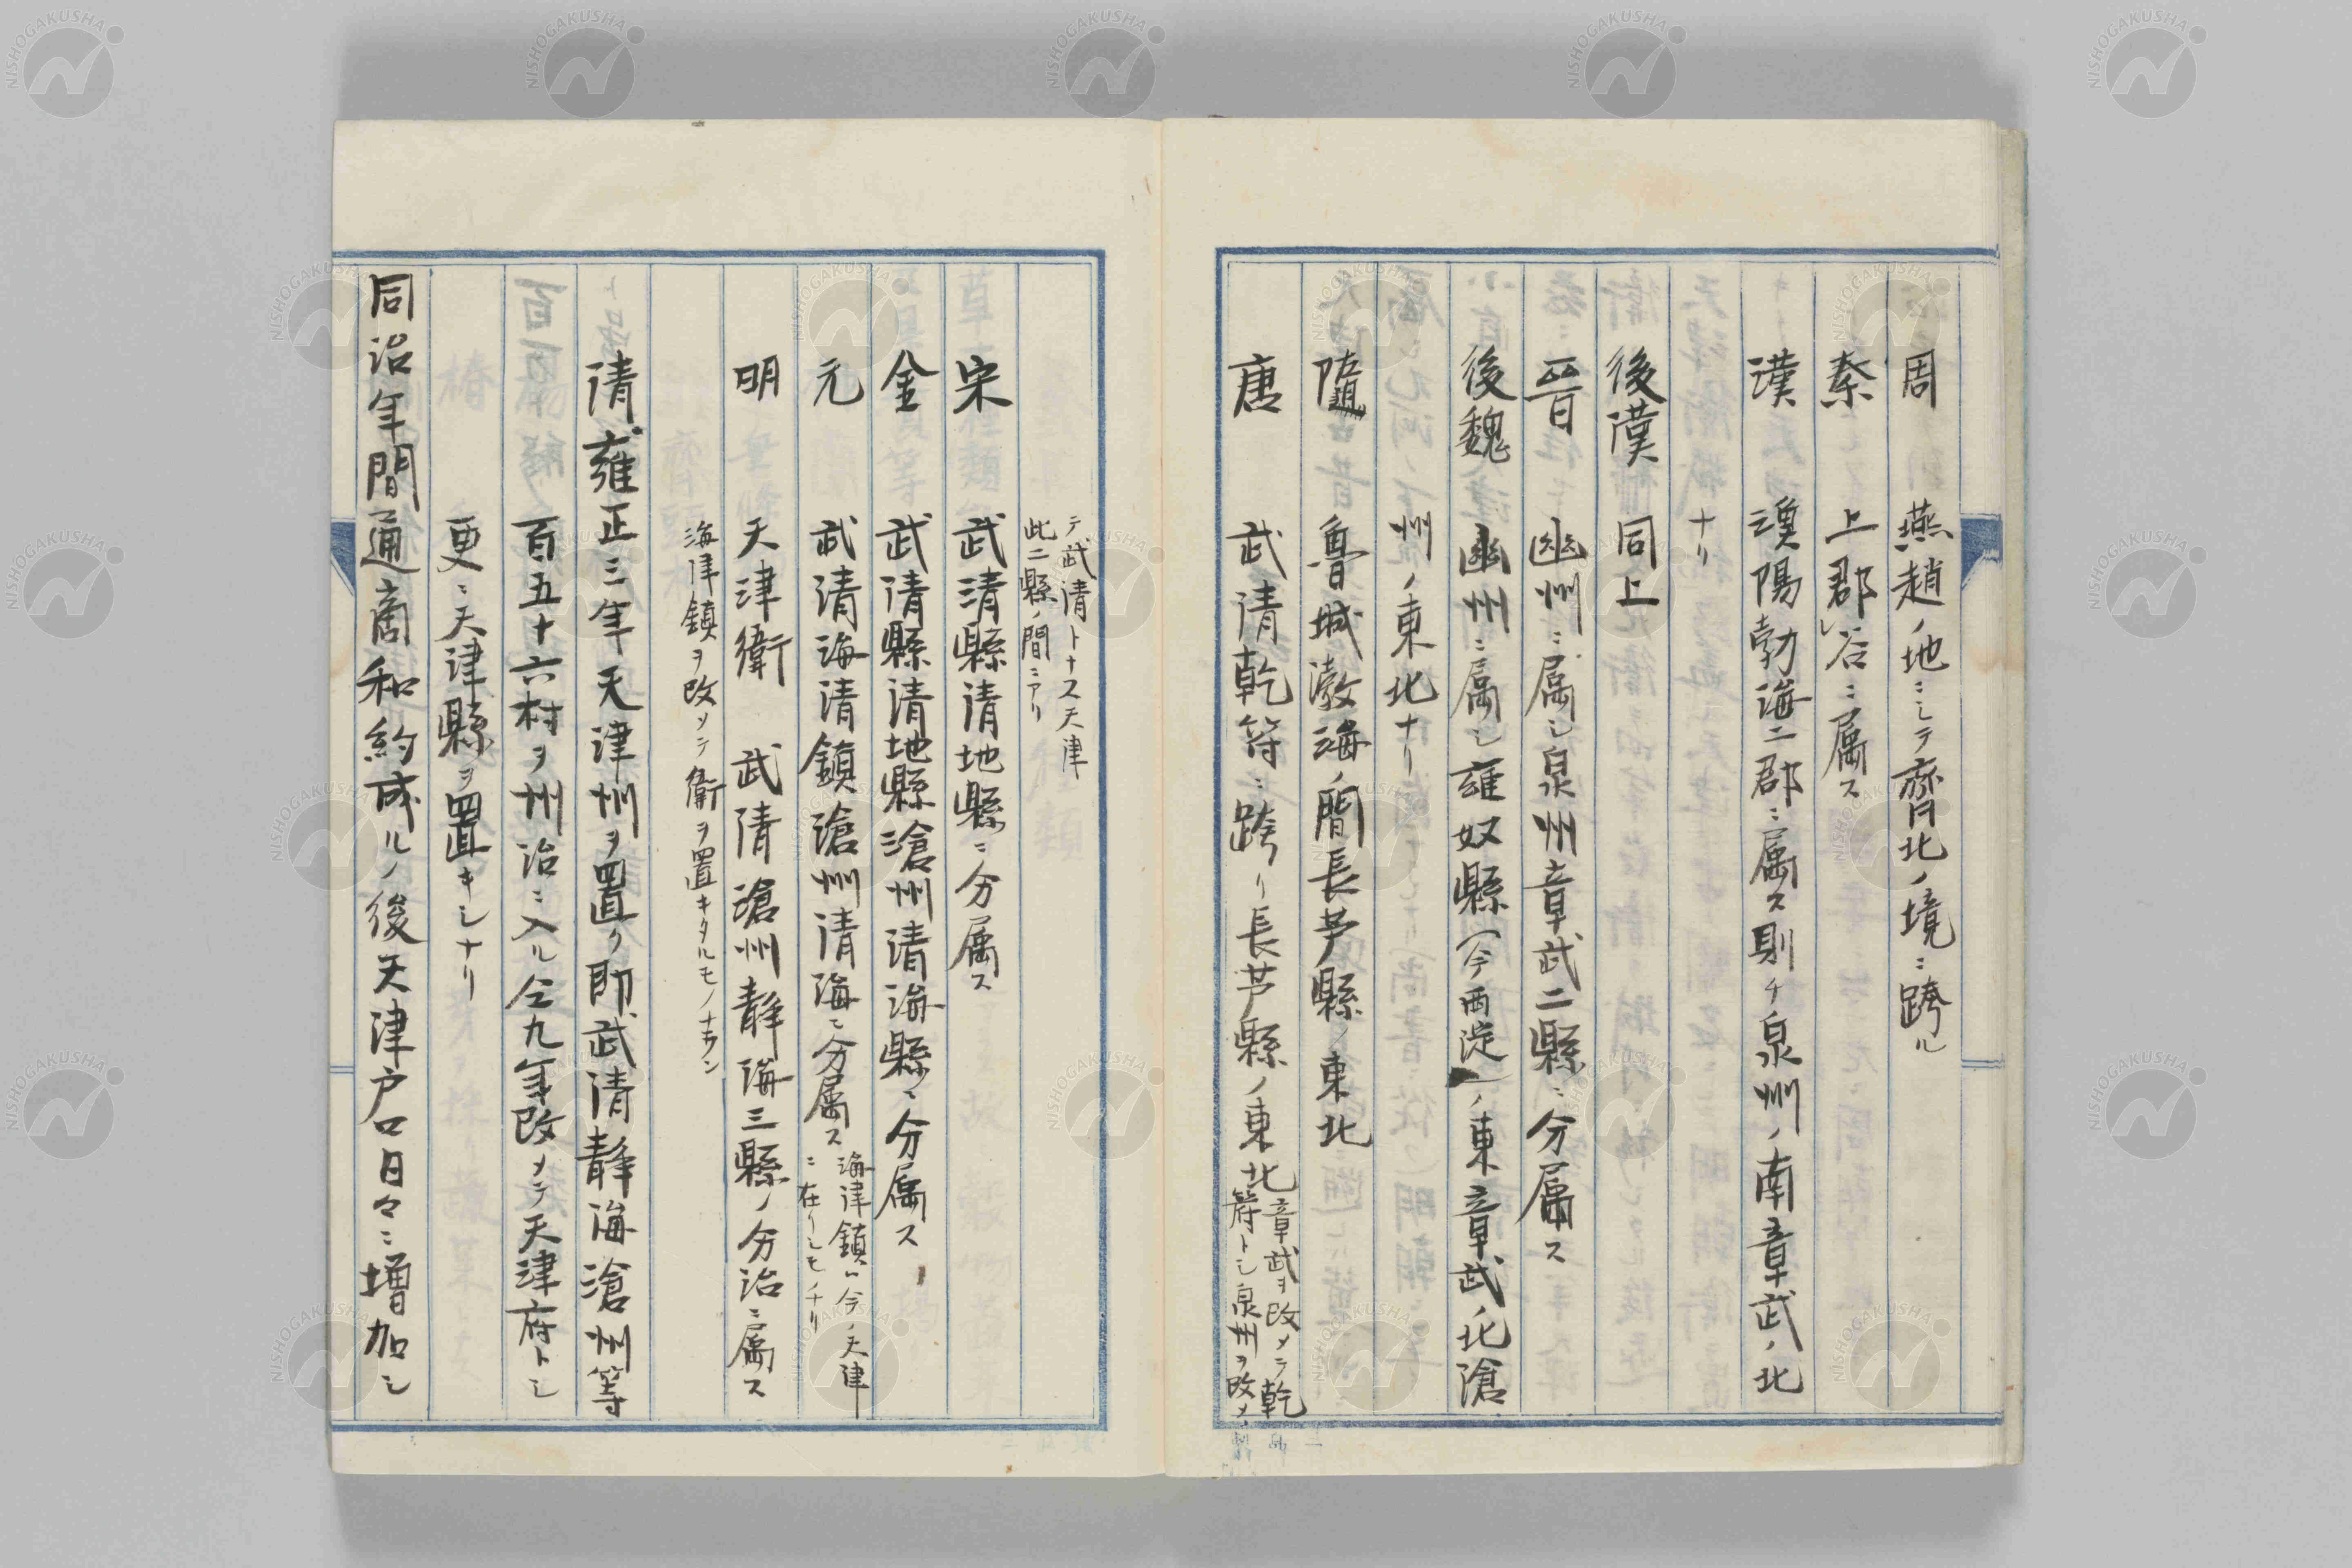 周　燕趙ノ地ニシテ齊北ノ境ニ跨ル
秦　上郡谷ニ属ス
漢　漢陽勃海二郡ニ属ス則チ泉州ノ南章武ノ北
ナリ
後漢　同上
晋　幽州ニ属シ泉州章武二縣ニ分属ス
後魏　幽州ニ属シ雍奴縣（今西淀）ノ東章武ノ北滄
州ノ東北ナリ
隨　魯城渤海ノ間長芦縣ノ東北
唐　武清乾符ニ跨リ長芦縣ノ東北
章武ヲ改メテ乾
符トシ泉州ヲ改メ
テ武清トナス天津
此二縣ノ間ニアリ
宋　武清縣清地縣ニ分属ス
金　武清縣清地縣滄州清海縣ニ分属ス
元　武清海清鎮滄州清海ニ分属ス
海津鎮ハ今ノ天津
ニ在リシモノナリ
明　天津衛　武清滄州静海三縣ノ分治ニ属ス
海津鎮ヲ改メテ衛ヲ置キタルモノナラン
清雍正三年天津州ヲ置ク即武清静海滄州等
百五十六村ヲ州治ニ入ル仝九年改メテ天津府トシ
更ニ天津縣ヲ置キシナリ
同治年間通商和約成ルノ後天津戸口日々ニ増加シ
NISHOGAKUSHA